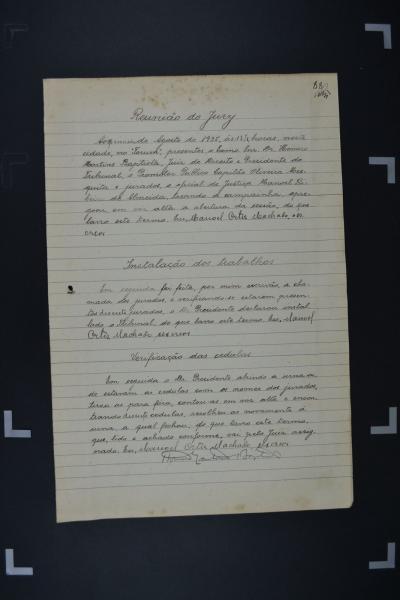 Reunião do Jury
Aos de Agosto de 1935, ás 12 horas, nesta
cidade, no "Forum", presentes o Exmo. Snr. Dr. Homero
Martins Baptista, Juiz de Direito e Presidente do
Tribunal, o Promotor Publico Capitão Oliveira Mes-
quita e jurados, o oficial de Justiça Manoel Ri-
de Almeida, tocando a campainha, apre-
goou em voz alta a abertura da sessão, do que
lavro este termo. Eu, Manoel Ortiz Machado, es-
crivão
Instalação dos trabalhos
Em seguida foi feita, por mim escrivão, a cha-
mada dos jurados, e verificando-se estarem presen-
tes jurados, o Dr. Presidente declarou instal-
lado o Tribunal do que lavro este termo. Eu, Manoel
Ortiz Machado escrivão
Verificação das cedulas
Em seguida o Dr. Presidente abrindo a urna on-
de estavam as cedulas com os nomes dos jurados,
tirou-as para fóra, contou-as em voz alta e encon-
trando cedulas, recolheu-as novamente á
urna, a qual fechou; do que lavro este termo,
que, lido e achado conforme, vai pelo Juiz assig-
nado. Eu, Manoel Ortiz Machado escrivão